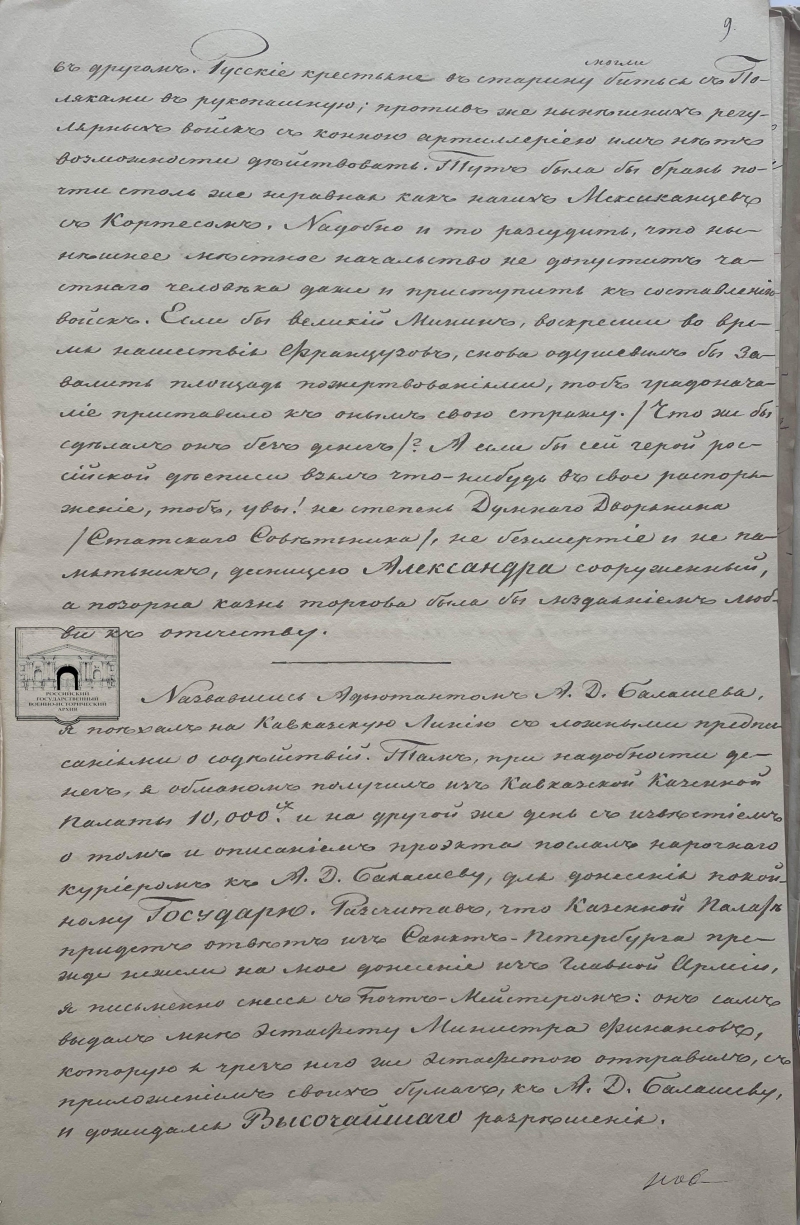 9.
могли
въ другомъ. Русскіе крестьяне въ старину биться съ По-
ляками въ рукопашную; противъ же нынѣшнихъ регу-
лярныхъ войскъ съ конною артиллеріею имъ нѣтъ
возможности дѣйствовать. Тутъ была бы брань по-
чти столь же неравная какъ нагихъ Мексиканцевъ
съ Кортесомъ. Надобно и то разсудить, что ны-
нѣшнее мѣстное начальство не допуститъ ча-
стнаго человѣка даже и приступить къ составленію
войскъ. Если бы великій Мининъ, воскресши во вре-
мя нашествія Французовъ, снова одушевилъ бы за-
валить площадь пожертвованіями, тобъ градонача-
ліе приставило къ онымъ свою стражу. /Что же бы
сдѣлалъ онъ безъ денегъ/? А если бы сей герой рос-
сійской дѣеписи взялъ что-нибудь въ свое распоря-
женіе, тобъ, увы! не степень Думнаго Дворянина
/Статскаго Совѣтника/, не безсмертіе и не па-
мятникъ, десницею Александра сооруженный,
а позорна казнь торгова была бы мздаяніемъ люб-
ви къ отечеству.
РОССИЙСКИЙ
ГОСУДАРСТВЕННЫЙ
ВОЕННО-ИСТОРИЧЕСКИЙ
АРХИВ
Назвавшись Адъютантомъ А. Д. Балашева,
я поѣхалъ на Кавказскую Линію съ ложными предпи-
саніями о содѣйствій. Тамъ, при надобности де-
негъ, я обманомъ получилъ изъ Кавказской Казенной
Палаты 10,000.цъ и на другой же день съ извѣстіемъ
о томъ и описаніемъ проэкта послалъ нарочнаго
куріеромъ къ А. Д. Балашеву, для донесенія покой-
ному Государю. Разсчитавъ, что Казенной Палатѣ
придетъ отвѣтъ изъ Санктъ-Петербурга пре-
жде нежели на мое донесеніе изъ Главной Арміи,
я письменно снесся съ Почтъ-Мейстеромъ: онъ самъ
выдалъ мнѣ эстафету Министра Финансовъ,
которую я чрезъ него же эстафетою отправилъ, съ
приложеніемъ своихъ бумагъ, къ А. Д. Балашеву,
и дожидался Высочайшаго разрѣшенія.